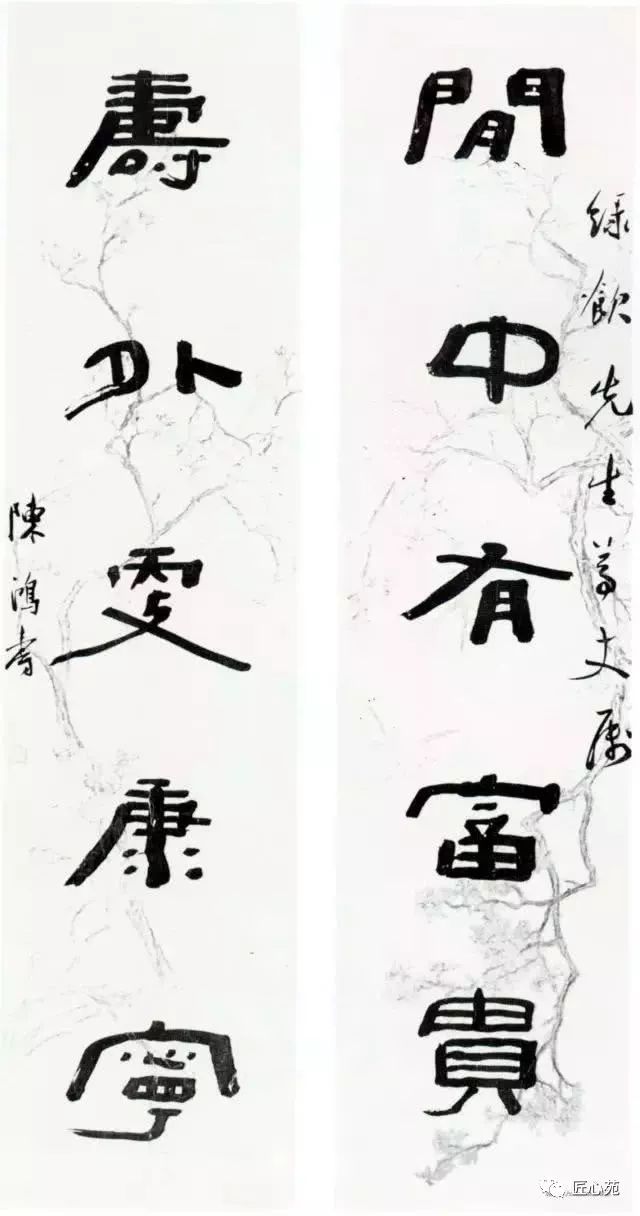 綠飲先生尊丈屬
閒中有富貴
壽外更康寧
陳鴻壽
匠心苑